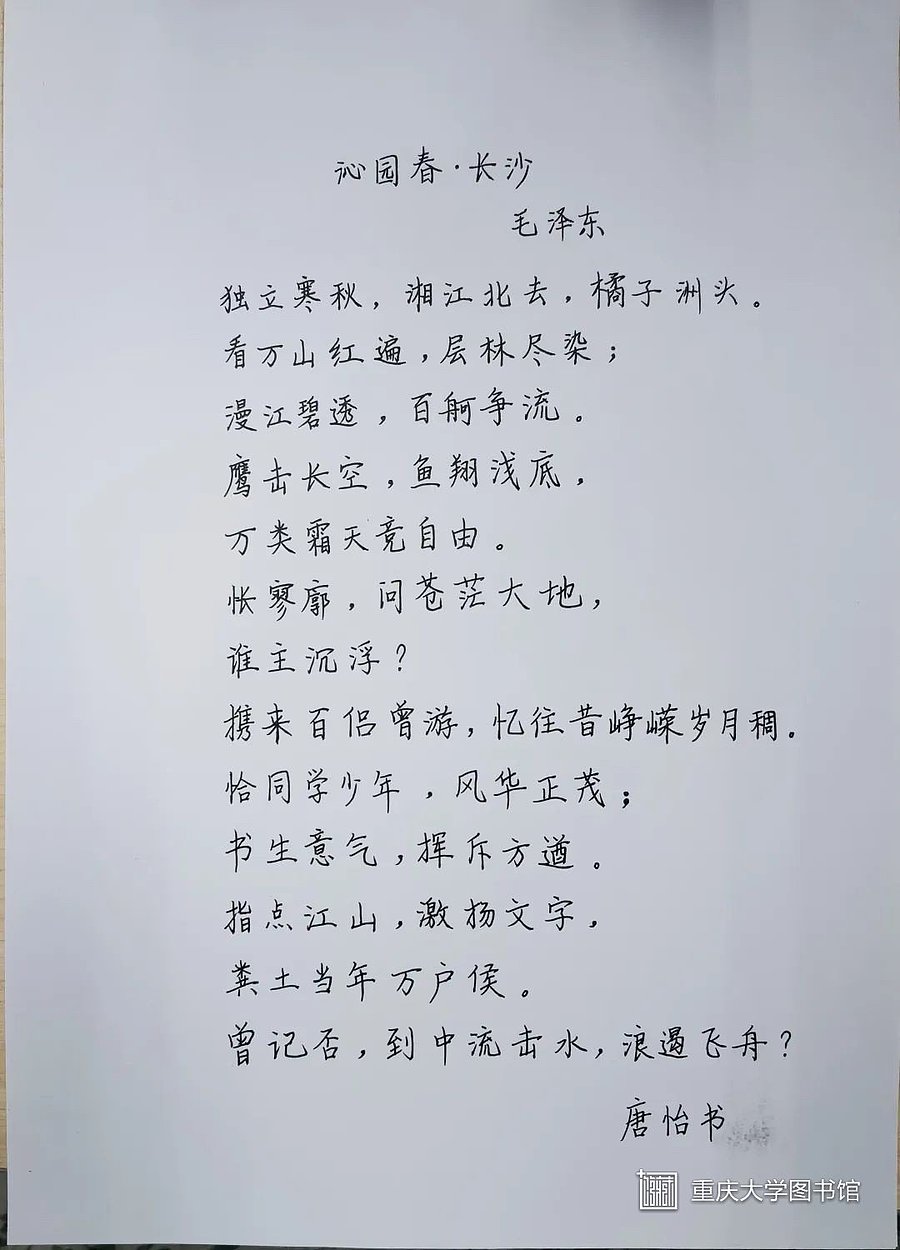 沁园春·长沙
毛泽东
独立寒秋,湘江北去,橘子洲头。
看万山红遍,层林尽染;
漫江碧透,百舸争流。
鹰击长空,鱼翔浅底,
万类霜天竞自由。
怅寥廓,问苍茫大地,
谁主沉浮?
携来百侣曾游,忆往昔峥嵘岁月稠。
恰同学少年,风华正茂;
书生意气,挥斥方遒。
指点江山,激扬文字,
粪土当年万户侯。
曾记否,到中流击水,浪遏飞舟?
唐怡书
重庆大学图书馆